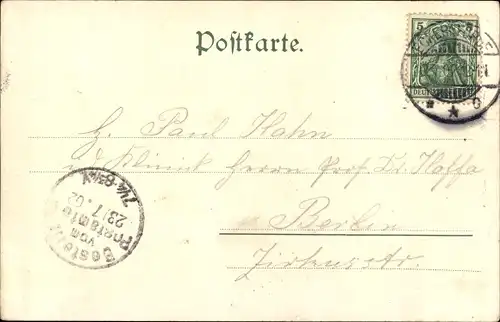 Postkarte.
5
H. Paul Hahn
Klinik Herrn Prof. Dr. Hoffa
Berlin
Bestellt
vom
Postamte
23/7.02
7¼-8¾N